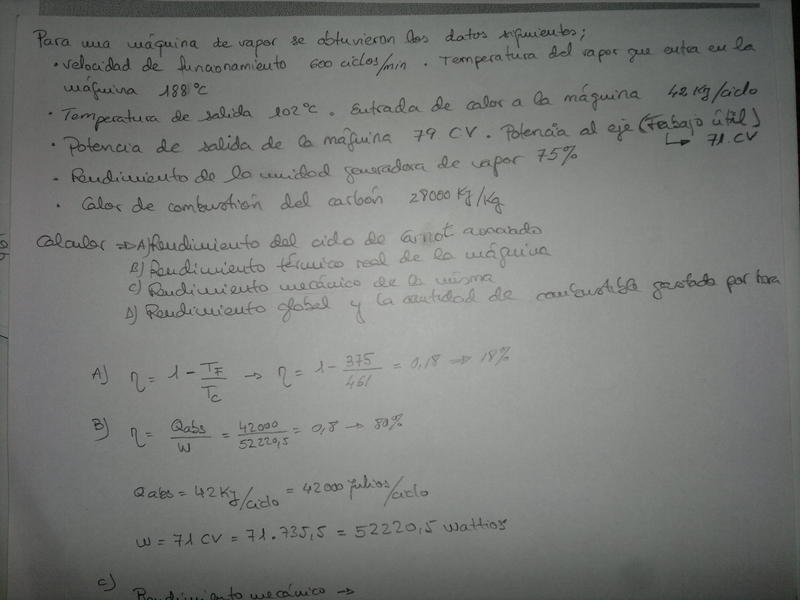 Para una máquina de vapor se obtuvieron los datos siguientes;
• velocidad de funcionamiento 600 ciclos/min • Temperatura del vapor que entra en la
máquina 188°C
• Temperatura de salida 102°C • Entrada de calor a la máquina 42 Kg/ciclo
• Potencia de salida de la máquina 79 CV • Potencia al eje (Trabajo útil)
↳ 71 CV
• Rendimiento de la unidad generadora de vapor 75%
• Calor de combustión del carbón 28000 Kg/Kg
Calcular ⇒ A) Rendimiento del ciclo de Carnot asociado
B) Rendimiento térmico real de la máquina
C) Rendimiento mecánico de la misma
D) Rendimiento global y la cantidad de combustible gastada por hora
A) η = 1 - TF/TC → η = 1 - 375/461 = 0,18 ⇒ 18%
B) η = Qabs/W = 42000/52220,5 = 0,8 → 80%
Qabs = 42 Kg/ciclo = 42000 julios/ciclo
W = 71 CV = 71 . 735,5 = 52220,5 Wattios
C) Rendimiento mecánico →